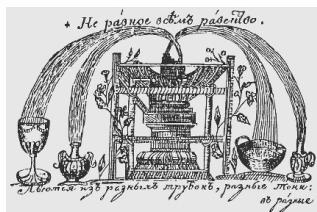 Не ра́вное всѣмъ ра́венство.
Льются изъ разныхъ трубокъ, разные токи:
въ разные